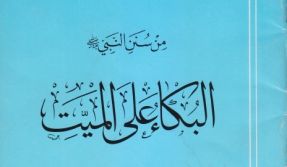 مِنْ سُنَنِ النَّبِيِّ ﷺ
البُكَاءُ عَلَى المَيِّتِ